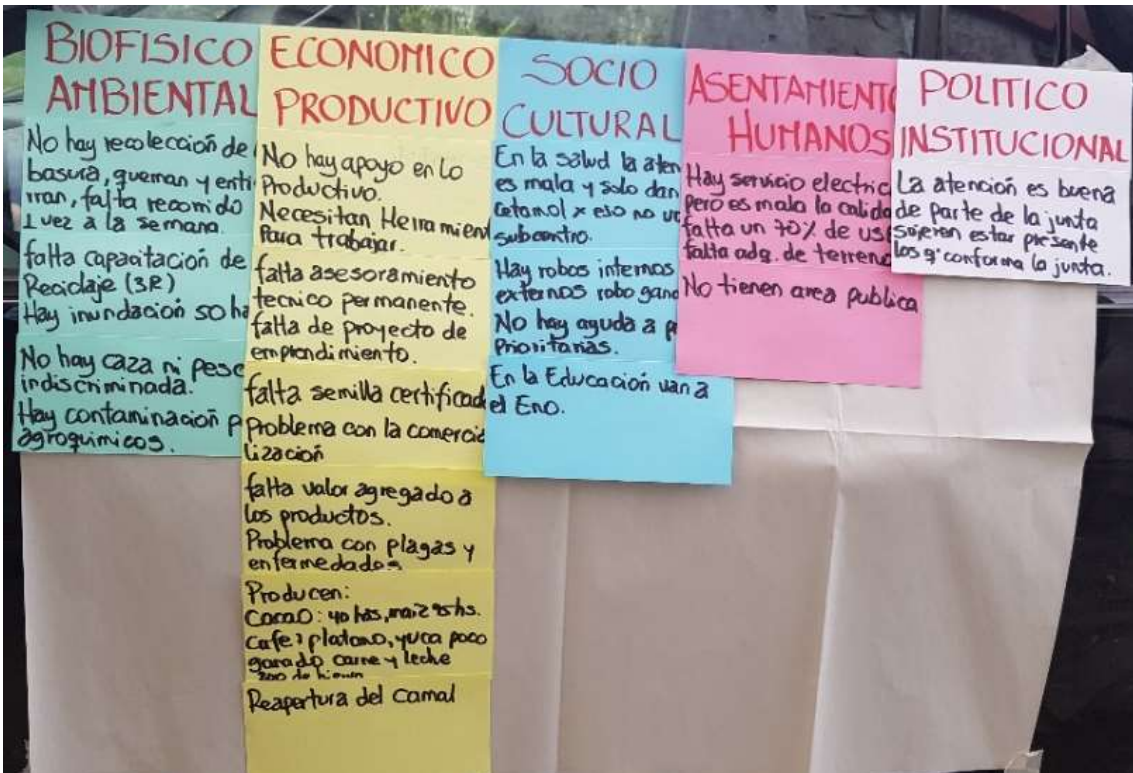 BIOFISICO
AMBIENTAL
No hay recolección de
basura, queman y enti
rran, falta recorrido
1 vez a la semana.
falta capacitación de
Reciclaje (3R)
Hay inundación
No hay caza ni pesc
indiscriminada.
Hay contaminación p
agroquimicos.
ECONOMICO
PRODUCTIVO
No hay apoyo en lo
Productivo.
Necesitan Herramient
Para trabajar.
falta asesoramiento
tecnico permanente.
falta de proyecto de
emprendimiento.
falta semilla certificad
Problema con la comercia
lización
falta valor agregado a
los productos.
Problema con plagas y
enfermedades
Producen:
Cacao: 40 has, maiz
Cafe, platano, yuca poco
ganado carne y leche
Reapertura del Camal
SOCIO
CULTURAL
En la salud la aten
es mala y solo dan
cetamol x eso no
subcentro.
Hay robos internos
externos robo gana
No hay ayuda a p
Prioritarias.
En la Educación van a
el Eno.
ASENTAMIENTO
HUMANOS
Hay servicio electric
pero es mala la calida
falta un 70% de us
falta adq. de terreno
No tienen area publica
POLITICO
INSTITUCIONAL
La atención es buena
de parte de la junta
sujeren estar presente
los q' conforma la junta.